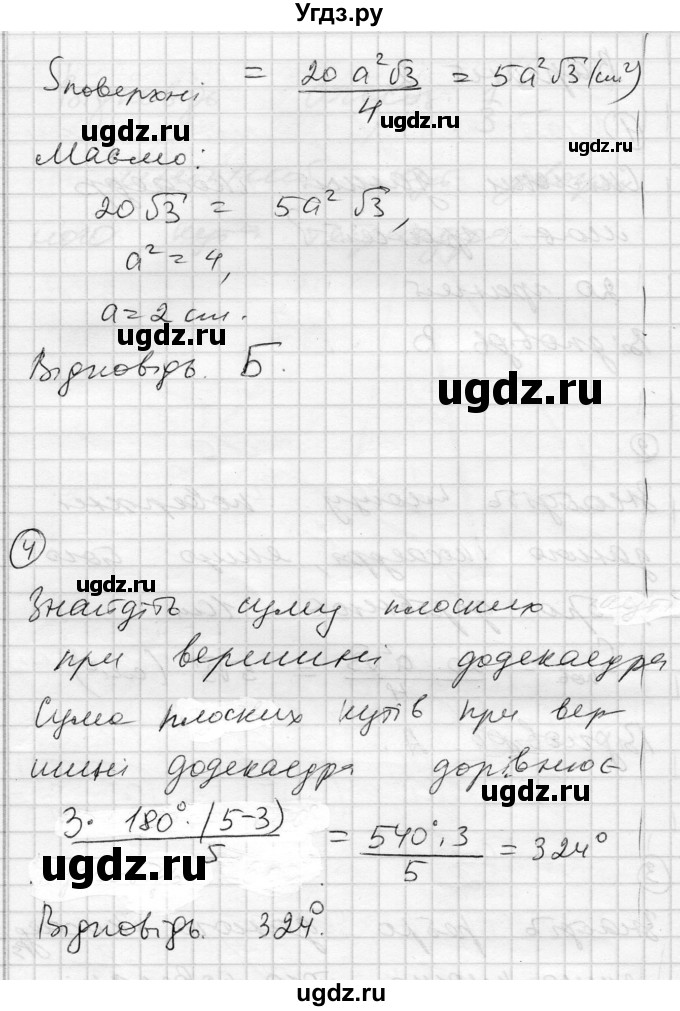 Угдз.ру
Sповерхні = 20 a²√3 / 4 = 5a²√3 (см²)
ugdz.ru ugdz.ru ugdz.ru
Маємо:
20√3 = 5a²√3,
ugdz.ru
a² = 4,
a = 2 см.
ugdz.ru
Відповідь. Б.
ugdz.ru
4
ugdz.ru
Знайдіть суму плоских
при вершині додекаедра
ugdz.ru
Сума плоских кутів при вер
шині додекаедра дорівнює
ugdz.ru
3 · 180° · (5-3) / 5 = 540° · 3 / 5 = 324°
ugdz.ru
Відповідь. 324°.
ugdz.ru
ugdz.ru